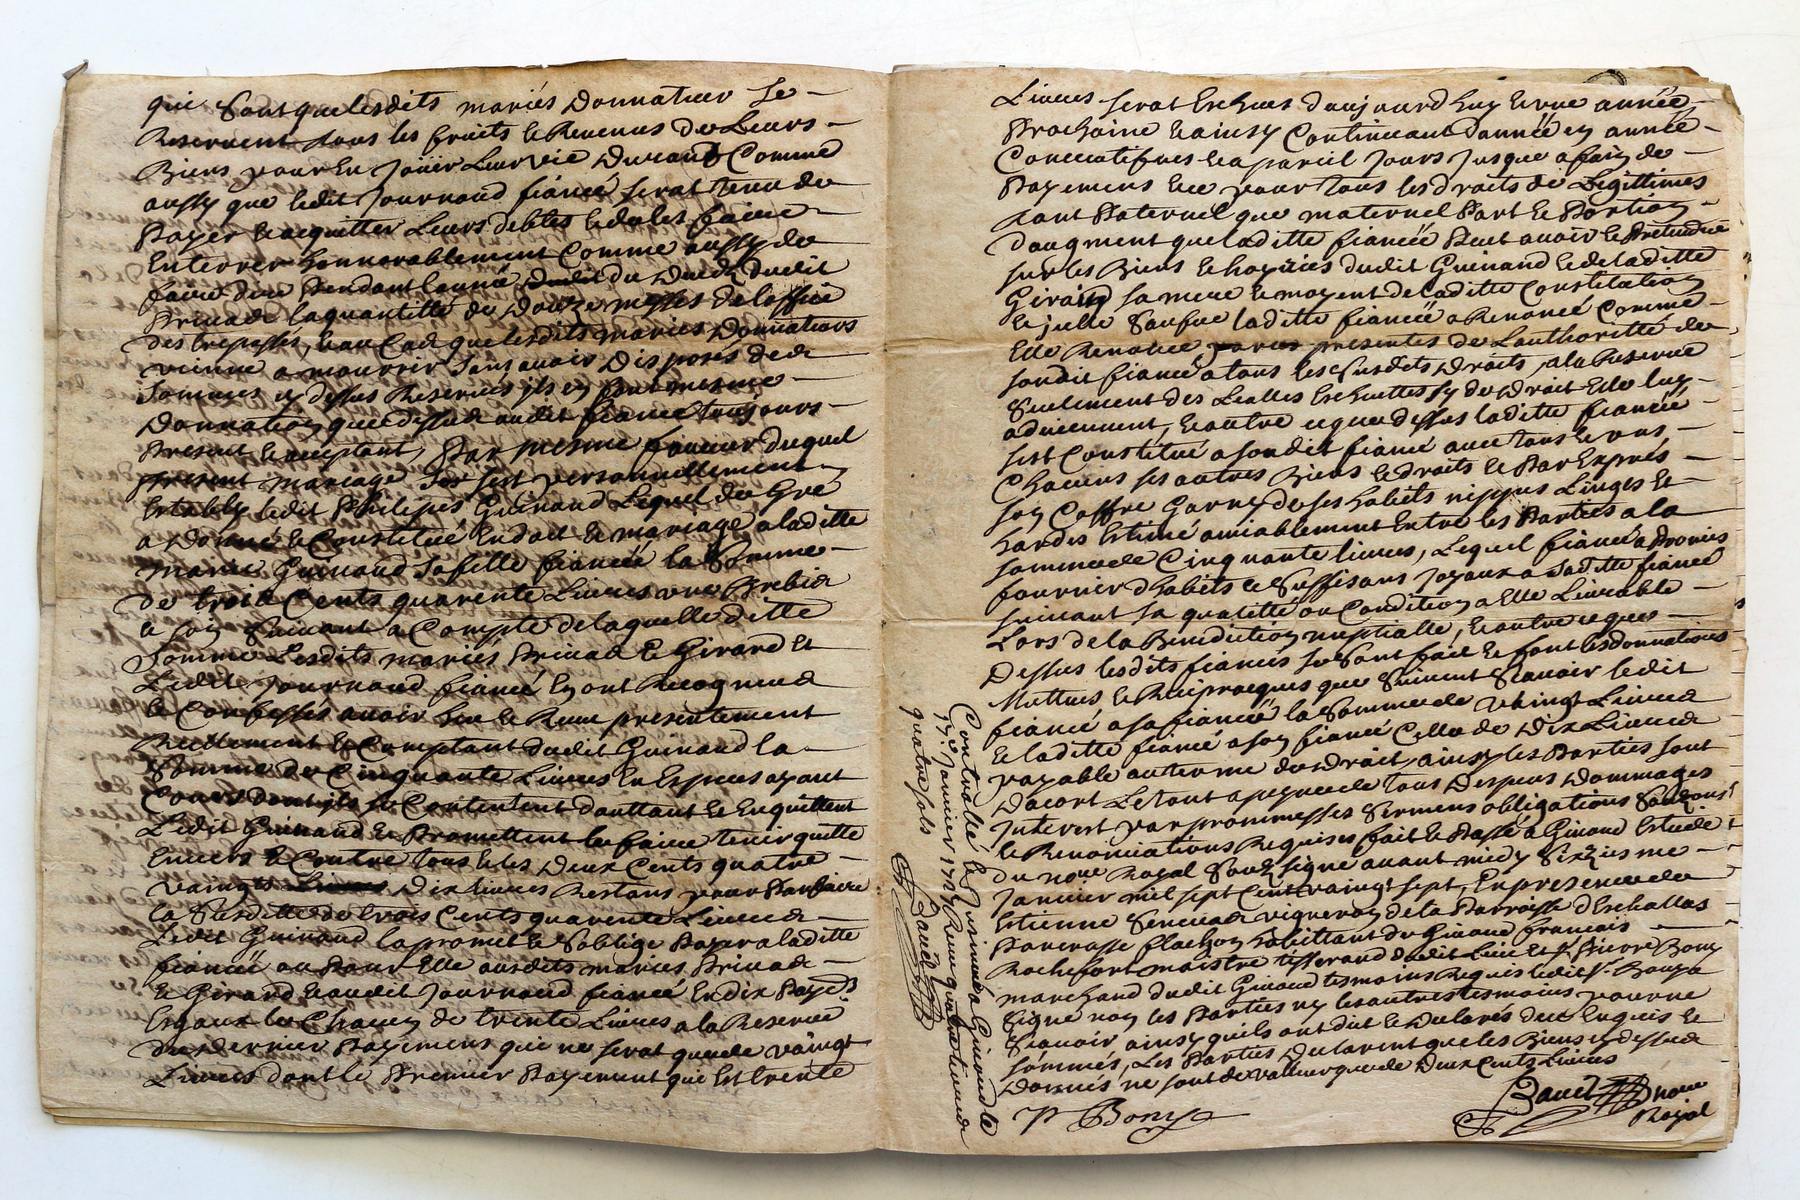 qui Sont que lesdits mariés Donnateur Se
Reservent tous les fruits & Revenus de Leurs
Biens pour En Joüir Leur vie Durant Comme
aussy que ledit Journoud fiancé serat tenu de
Payer & acquitter Leurs debtes & de les faire
Enterrer honnorablement Comme aussy de
faire dire Pendant lanné du Dueil dudit
Privad laquantitté de Douze messes de loffice
des trepassés, & au Cas que lesdits mariés Donnateurs
vienne a mourrir sans avoir Disposés des
Sommes cy dessus Reservées ils en font mesme
Donnation que dessus audit fiancé toujours
Present & acceptant, Par mesme faveur duquel
present mariage Sor sest personnellement
Estably ledit Philipes Guinand Lequel de Gré
a Donné & Constitué En dot & mariage a laditte
marie Guinand Sa fille fiancée la Somme
de trois Cents quarente Livres une Brebis
& son Suivant a Compte de laquelle ditte
Somme Lesdits mariés Privad & Girard Et
Ledit Journoud fiancé En ont Recognus
& Confessés avoir heu & Receu presentement
Reellement & Comptant dudit Guinand la
Somme de Cinquante Livres En Especes ayant
Cours dont ils se Contentent d'auttant & En quittent
Ledit Guinand & Promettent len faire tenir quitte
Envers & Contre tous & les Deux Cents quatre
vaingts Dix livres Restans pour Parfaire
la Susditte de trois Cents quarente Livres
Ledit Guinand la promet & Soblige Payer a laditte
fiancée ou Pour Elle ausdits mariés Privad
& Girard & audit Journoud fiancé En dix Payes
Egaux de Chacun de trente Livres a la Reserve
du dernier Payement qui ne serat que de vaingt
Livres dont le Premier Payement qui Est trente
Livres serat Escheus d'aujourdhuy En une année
Prochaine & ainsy Continuant d'année en année
Concecutifues & a pareil Jours Jusque a fain de
Payemens & ce pour tous les droits de Legittimes
tant Paternel que maternel Part & Portion
daugment que laditte fiancée Peut avoir & Pretendre
sur les Biens & hoyries dudit Guinand & de laditte
Giraud sa mere & moyent de laditte Constitution
Elle Renonce presentes de Lauthorité de
sondit fiancé a tous les susdits Droits, a la Reserve
Seulement des Lealles Escheuttes sy de Droit Elle luy
advienment, & outre ce que dessus laditte fiancée
sest Constitué a sondit fiancé avec tous & uns
Chacuns ses autres Biens & droits & Par Exprés
son Coffre Garny de ses habits nippes Linges &
hardes Estimé amiablement Entre les Parties a la
somme de Cinquante livres, Lequel fiancé a Promis
fournir d'habits & Suffisans Joyaux a Saditte fiancé
suivant sa qualitté ou Condition a Elle Livrable
Lors de la Benediction nuptialle, & outre ce que
Dessus lesdits fiancés se Sont fait & font les donnations
Mutues, & Reciproques que Suivent Scavoir ledit
fiancé a sa fiancée la Somme de vaingt Livres
& laditte fiancé a son fiancé Celle de Dix Livres
payable au terme de droit, ainsy les Parties sont
Dacort Le tout a peyne de tous Despens Dommages
Interest par prommesses Sermens obligations
& Renonciations Requises fait & Passé a Giraud Estude
du noue Royal Soubsigné avant midy Sixziesme
Janvier mil sept Cent vaingt sept, En presence de
Estienne vigneron de la Parroisse d'Eschallas
Pancrasse flachon habittant du Giraud francois
Rochefort maistre tisserand dudit Lieu & Sr Pierre Bony
marchand dudit Giraud tesmoins Requis ledit Sr Bony a
Signé non les Parties ny les autres tesmoins pour ne
Scavoir ainsy quils ont dit & Declarés deux Enquis &
sommés, Les Parties Declarent que les Biens cy dessus
Donnés ne sont de valleur que de Deux Cents Livres
P Bony
Bauet noue
Royal
Controllé & Jnsinué a Giraud le
17e janvier 1727 Receu quarente
quatre sols
Bauet